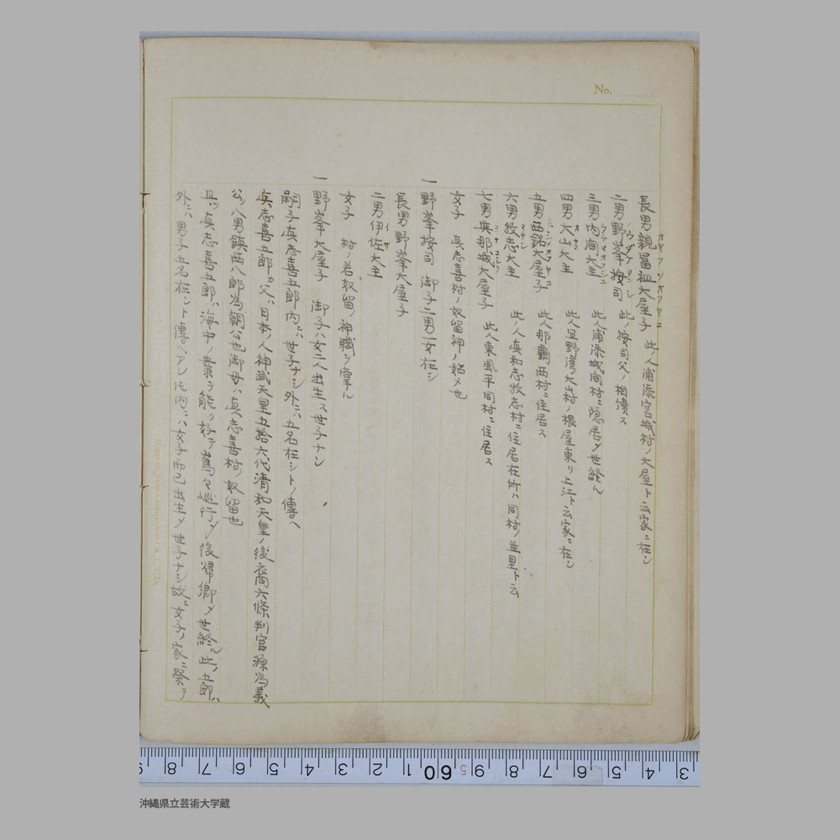 No.
長男親富祖大屋子 此ノ人浦添宮城村ノ大屋ト云家ニ在シ
二男野峯按司 此ノ按司父ノ相續ス
三男内間大主 此人浦添城間村ニ隠居シ世終ル
四男大山大主 此人宜野湾大山村ノ根屋東リ上江ト云家ニ在シ
五男西銘大屋子 此人那覇西村ニ住居ス
六男牧志大主 此ノ人真和志牧志村ニ住居在所ハ同村ノ並里ト云
七男與那城大屋子 此人東風平同村ニ住居ス
女子 真志喜村ノ奴留神ノ始メ也
一 野峯按司 御子二男一女在シ
長男野峯大屋子
二男伊佐大主
女子 村ノ若奴留ノ神職ヲ掌ル
一 野峯大屋子 御子ハ女二人出生ス世子ナシ
嗣子真志喜五郎内ニハ世子ナシ外ニハ五名在シトノ傳ヘ
真志喜五郎カ父ハ日本ノ人神武天皇五拾六代清和天皇ノ後裔六條判官源為義
公ノ八男鎮西八郎為朝公也御母ハ真志喜村ノ奴留也
具ノ真志喜五郎ハ海中ノ業ヲ能ク好テ萬々巡行シ後帰郷シ世終ル此五郎ハ
外ニハ男子五名在シト傳ヘアレ氏内ニハ女子而已出生シ世子ナシ故ニ女子ノ家ニ祭ラ
3 4 5 6 7 8 9 60 1 2 3 4 5 6 7 8 9
沖縄県立芸術大学蔵